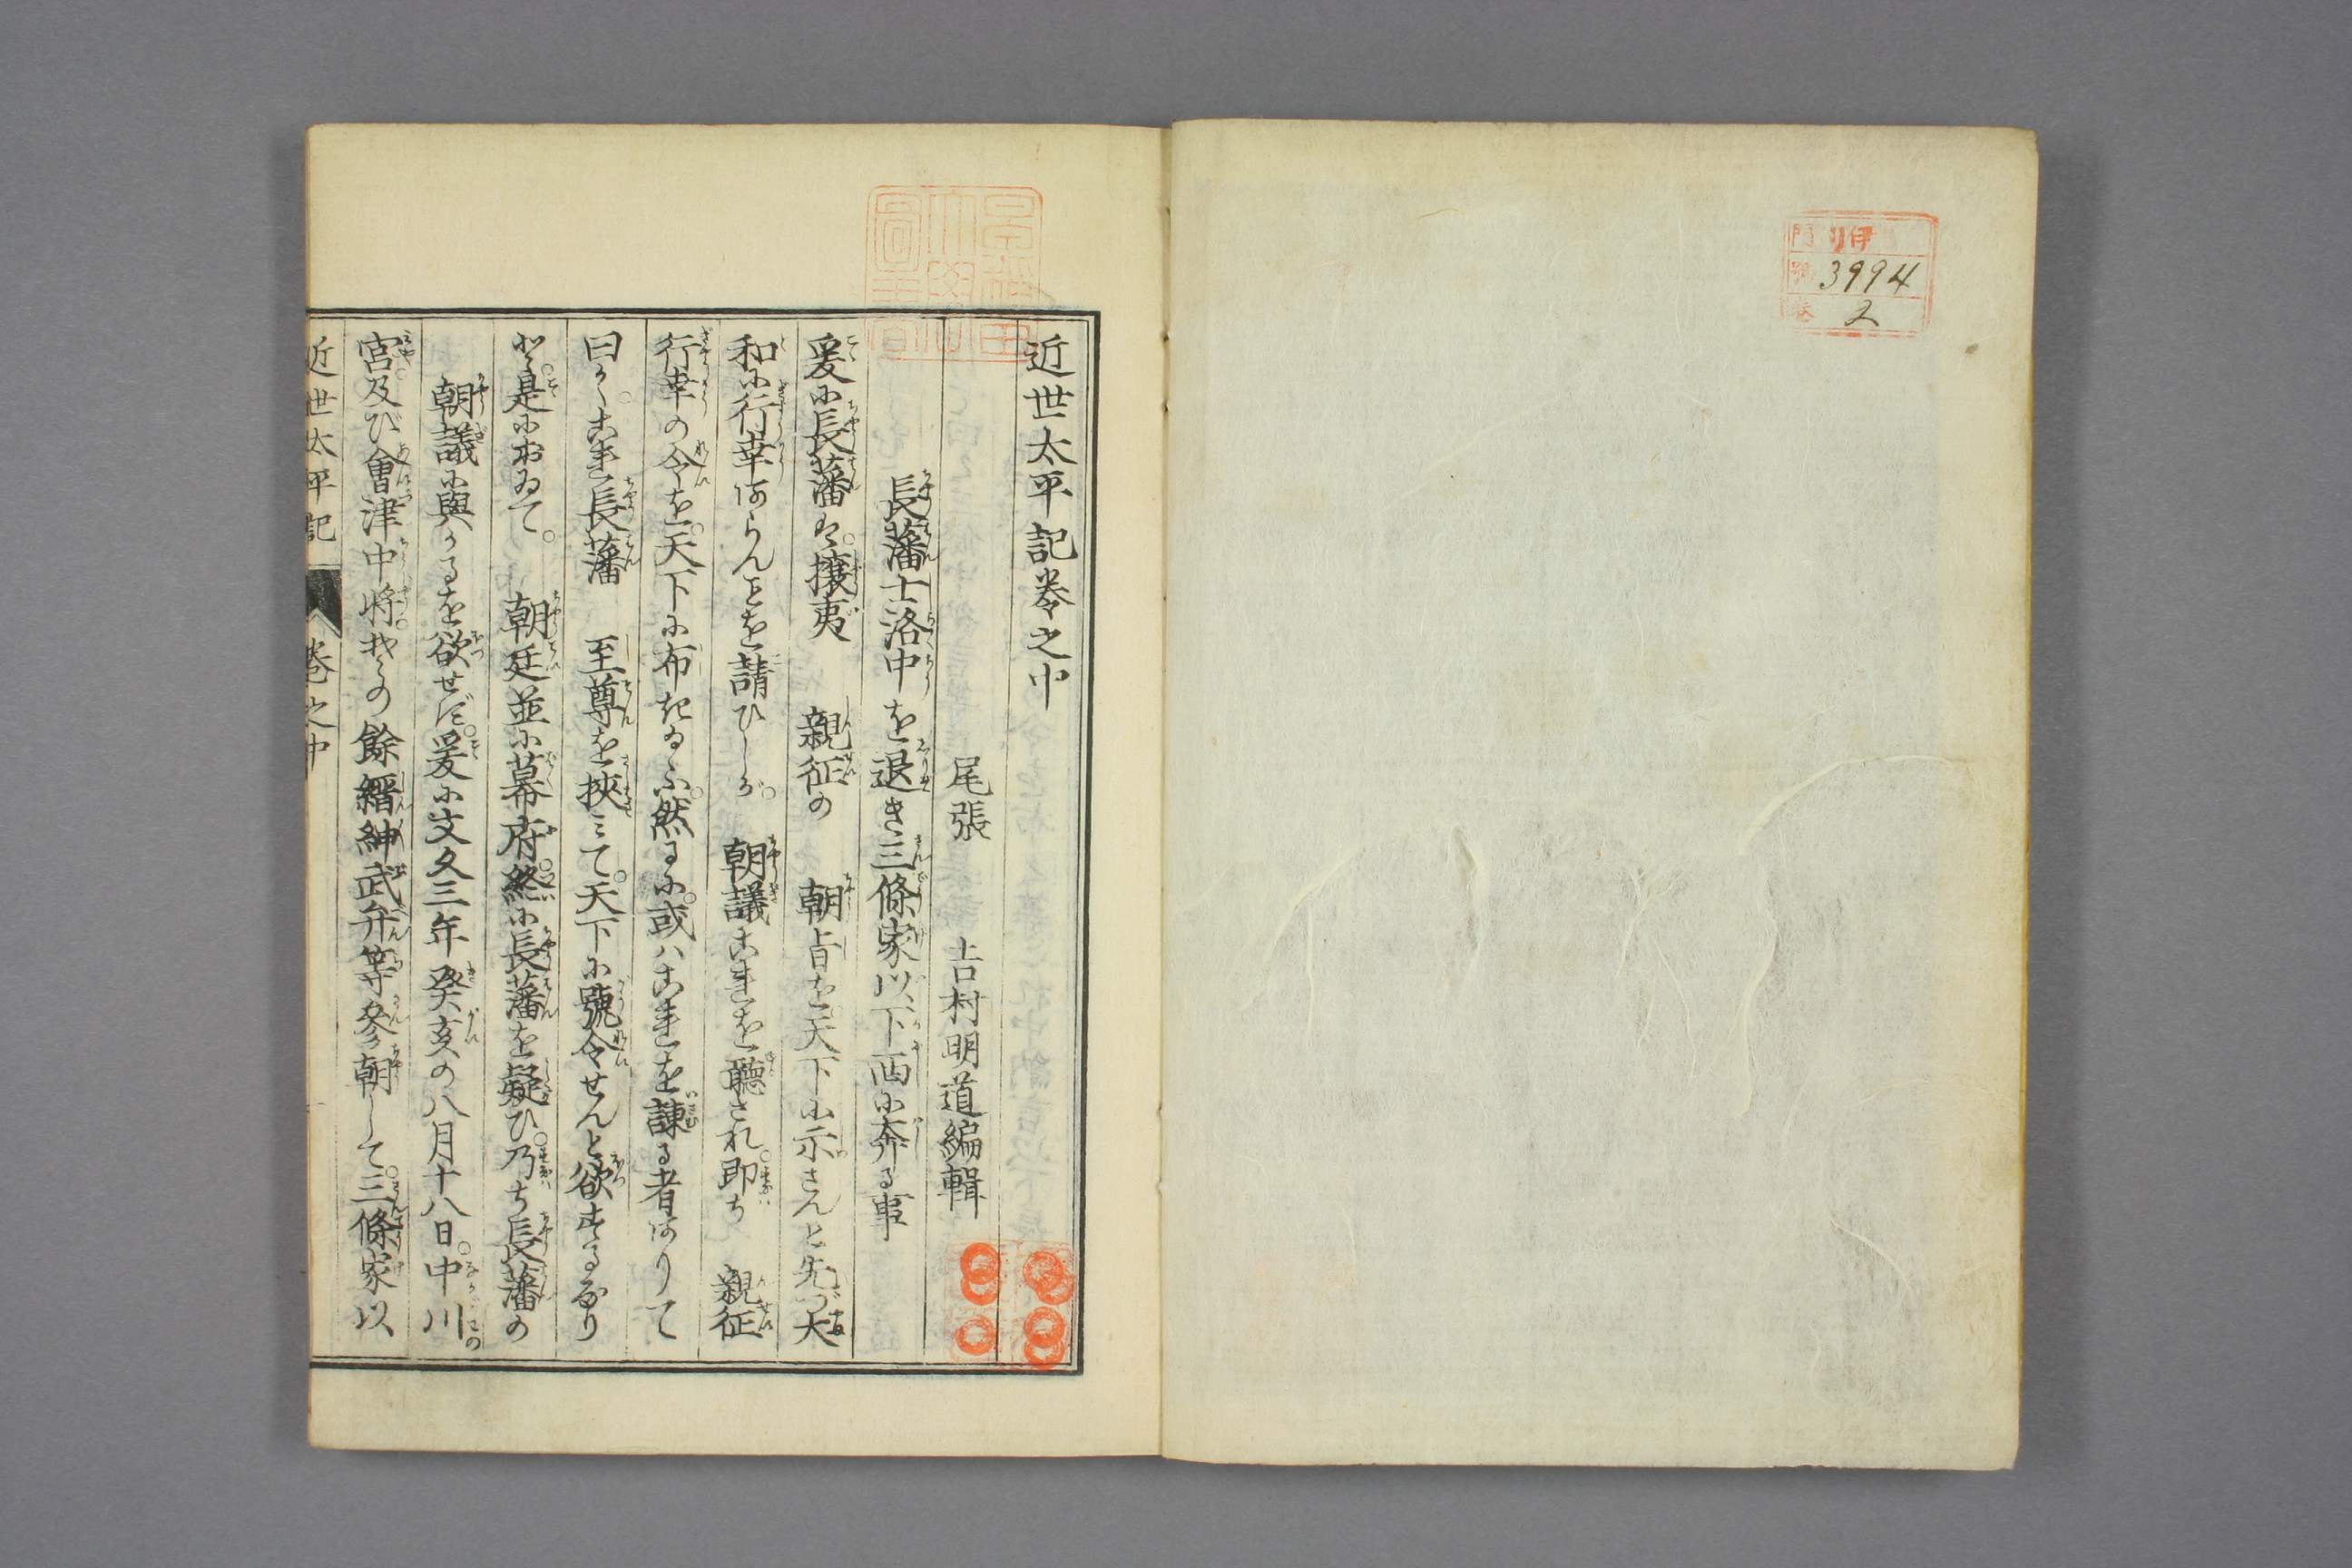 門 リ伊
號 3994
卷 2
近世太平記卷之中
尾張 吉村明道編輯
長藩士洛中を退き三條家以下西に奔る事
爰に長藩は。攘夷 親征の 朝旨を。天下に示さんと先づ大
和に行幸あらんことを請ひしが。 朝議これを聽され。即ち 親征
行幸の令を。天下に布きゐふ。然るに。或ハこれを諫る者ありて
曰く。これ長藩 至尊を挾みて。天下に號令せんと欲するなり
と。是においゐて。 朝廷並に幕府。終に長藩を疑ひ。乃ち長藩の
朝議に與かるを欲せず。爰に文久三年癸亥の八月十八日。中川
宮。及び會津中將。その餘縉紳武弁等參朝して。三條家以
近世太平記 卷之中